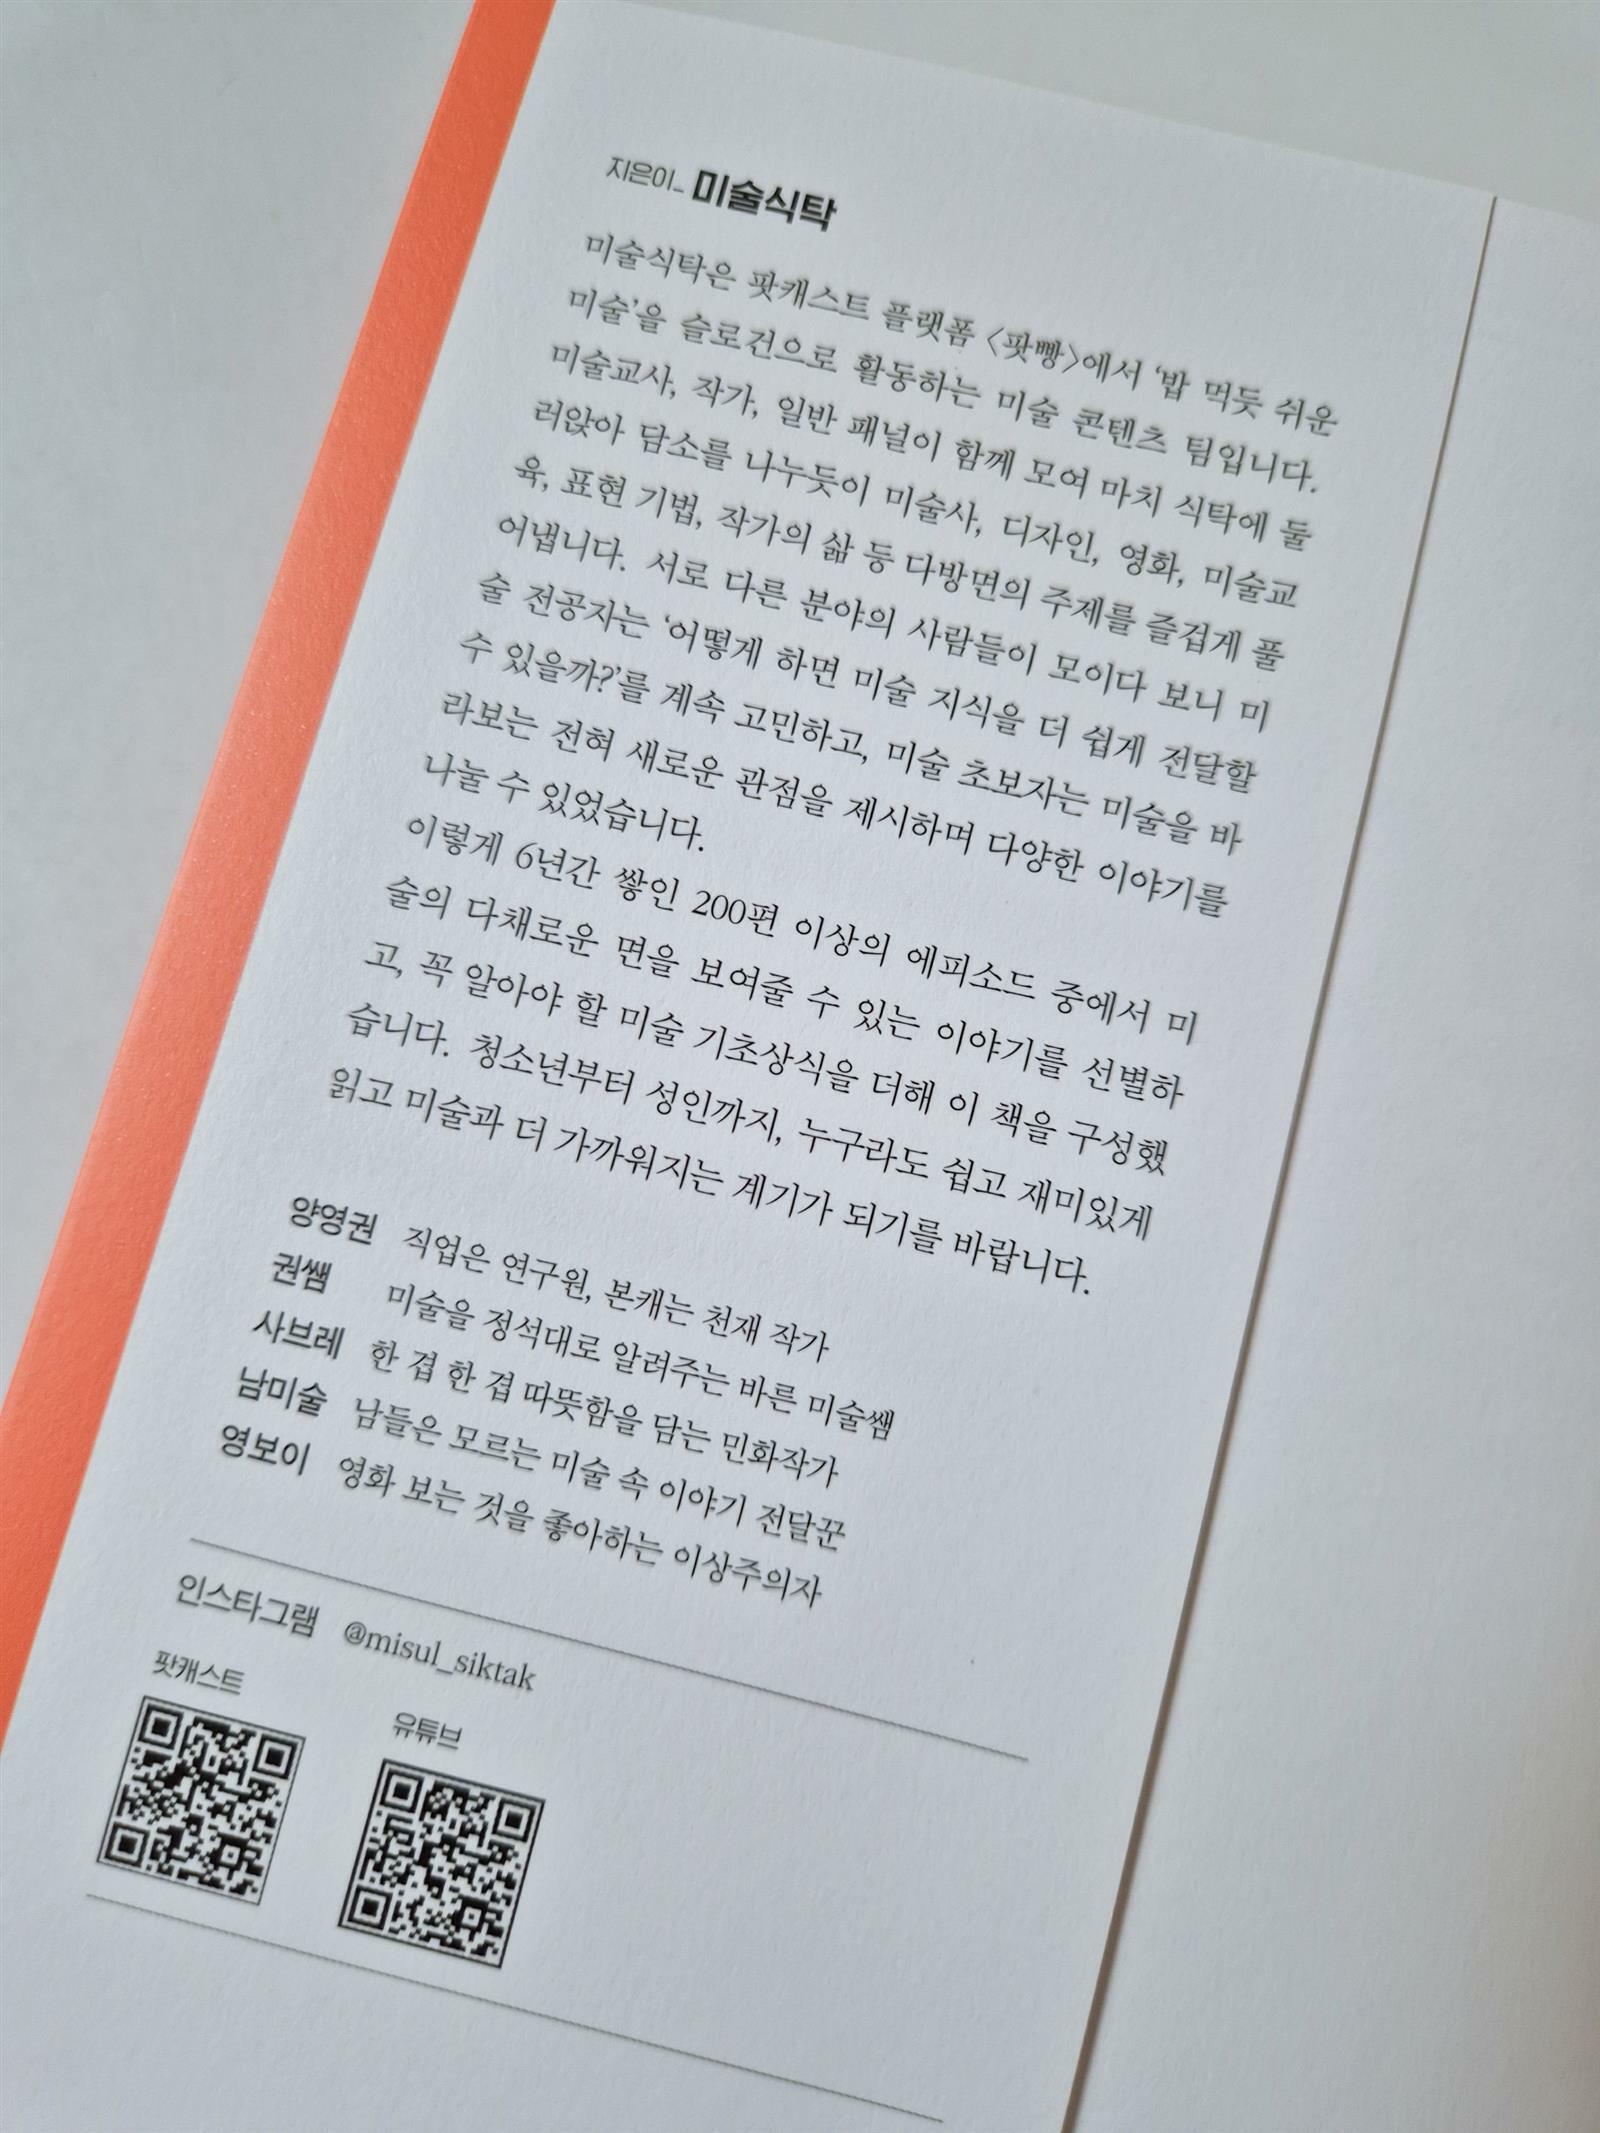 지은이_ 미술식탁
미술식탁은 팟캐스트 플랫폼 〈팟빵〉에서 ‘밥 먹듯 쉬운
미술’을 슬로건으로 활동하는 미술 콘텐츠 팀입니다.
미술교사, 작가, 일반 패널이 함께 모여 마치 식탁에 둘
러앉아 담소를 나누듯이 미술사, 디자인, 영화, 미술교
육, 표현 기법, 작가의 삶 등 다방면의 주제를 즐겁게 풀
어냅니다. 서로 다른 분야의 사람들이 모이다 보니 미
술 전공자는 ‘어떻게 하면 미술 지식을 더 쉽게 전달할
수 있을까?’를 계속 고민하고, 미술 초보자는 미술을 바
라보는 전혀 새로운 관점을 제시하며 다양한 이야기를
나눌 수 있었습니다.
이렇게 6년간 쌓인 200편 이상의 에피소드 중에서 미
술의 다채로운 면을 보여줄 수 있는 이야기를 선별하
고, 꼭 알아야 할 미술 기초상식을 더해 이 책을 구성했
습니다. 청소년부터 성인까지, 누구라도 쉽고 재미있게
읽고 미술과 더 가까워지는 계기가 되기를 바랍니다.
양영권 직업은 연구원, 본캐는 천재 작가
권쌤 미술을 정석대로 알려주는 바른 미술쌤
사브레 한 겹 한 겹 따뜻함을 담는 민화작가
남미술 남들은 모르는 미술 속 이야기 전달꾼
영보이 영화 보는 것을 좋아하는 이상주의자
인스타그램 @misul_siktak
팟캐스트 유튜브